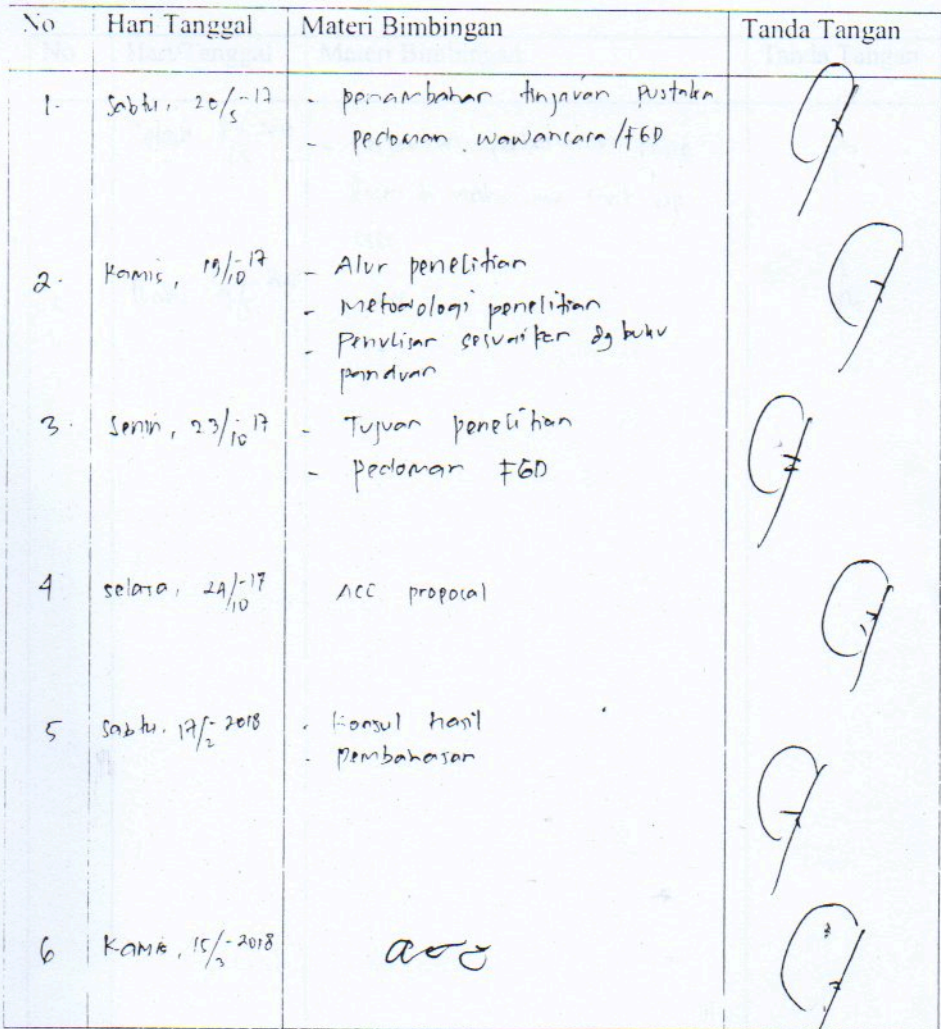 No Hari Tanggal Materi Bimbingan Tanda Tangan
1. Sabtu, 20/5-17 - penambahan tinjauan Pustaka
- pedoman wawancara/FGD
2. Kamis, 19/10-17 - Alur penelitian
- Metodologi penelitian
- Penulisan sesuaikan dg buku
panduan
3. Senin, 23/10-17 - Tujuan penelitian
- pedoman FGD
4 selasa, 24/10-17 ACC proposal
5 Sabtu, 17/2-2018 - Konsul hasil
- pembahasan
6 Kamis, 15/3-2018 acc